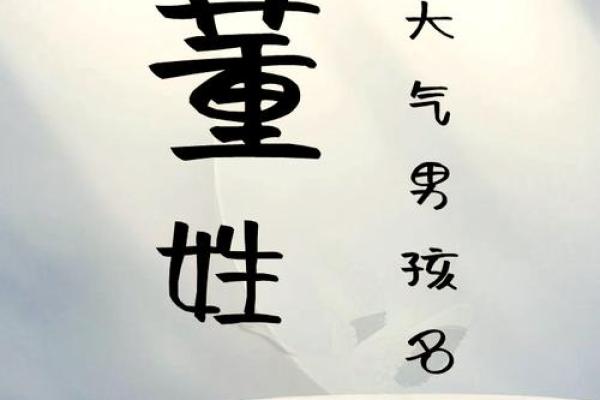 董姓
大气男孩名